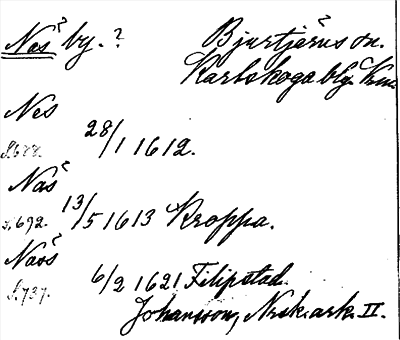 Nas? by.? Bjurtjärns sn.
Karlskoga blg. Krm.
Nes
S.688. 28/1 1612.
Nas?
S.692. 13/5 1613 Kroppa.
Naas?
S.737. 6/2 1621 Filipstad.
Johansson, Norsk.ark. II.